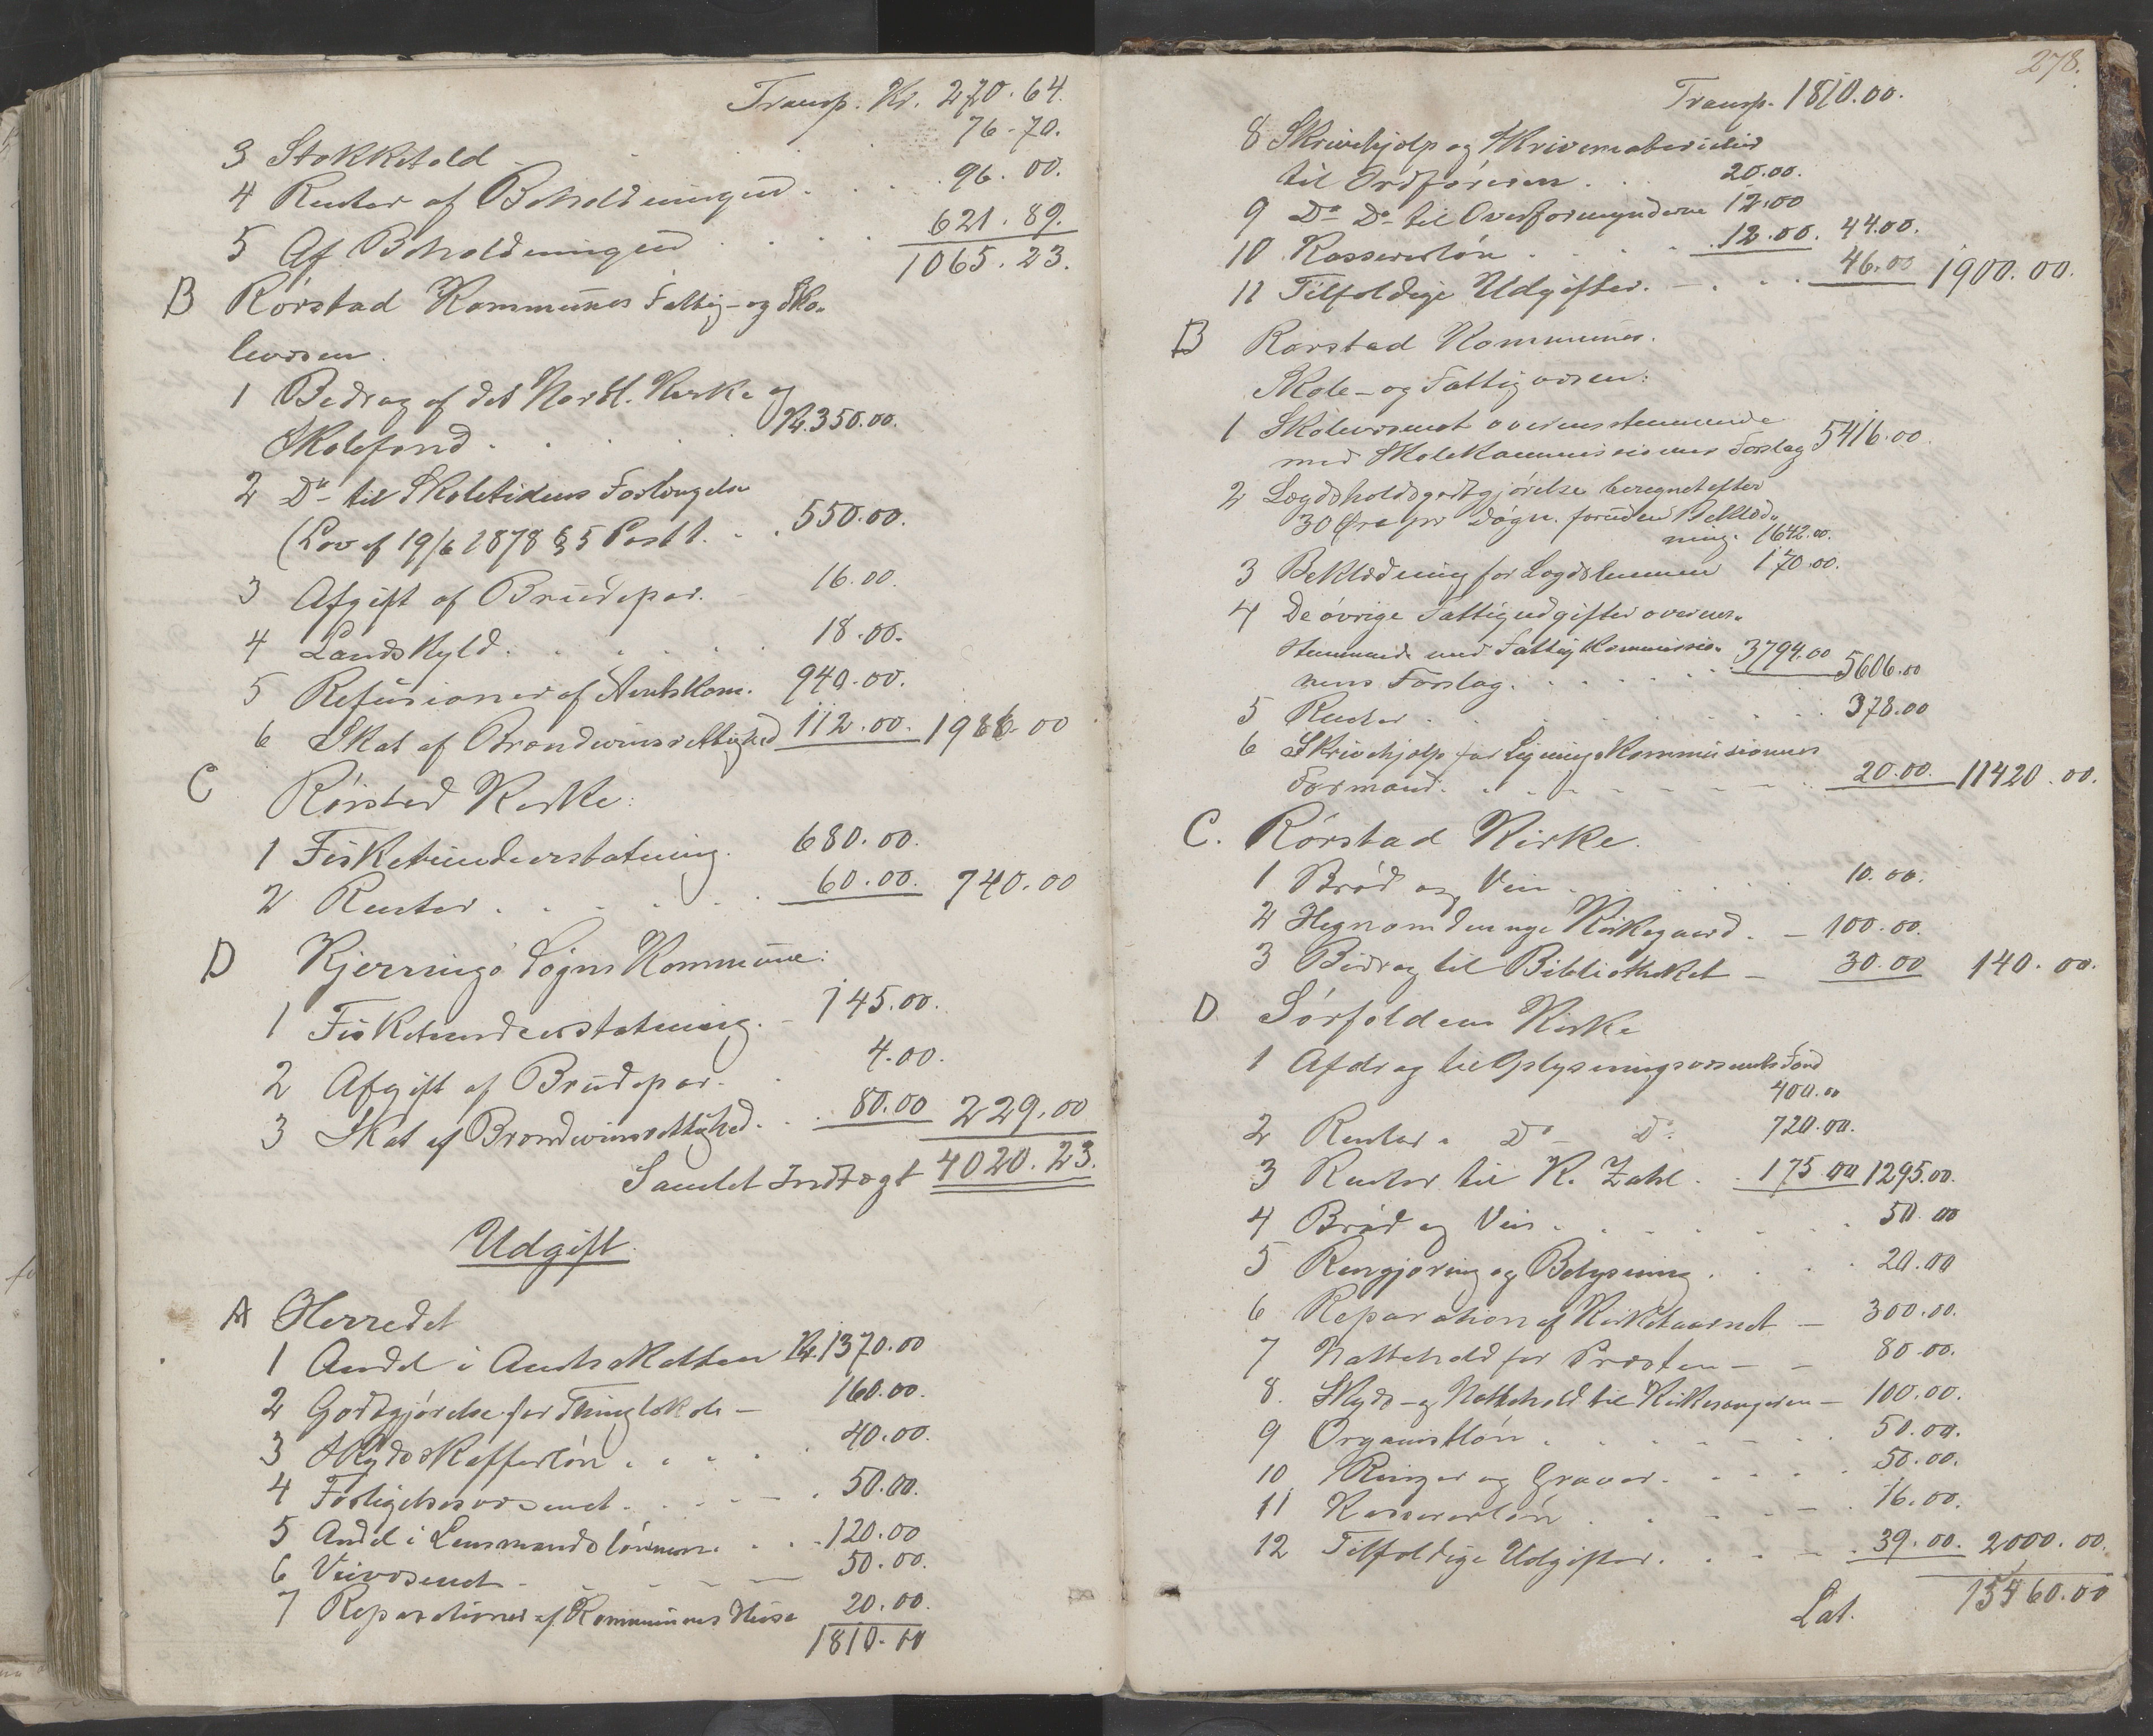 Transp. Kr. 270.64.
76.70.
3 Stokketold
4 Renter af Beholdningen . . . 96.00.
5 Af Beholdningen . . . 621.89.
1065.23.
B Rörstad Kommunes Fattig- og Sko-
levæsen.
1 Bedrag af det Nordl. Kirke og
Skolefond . . . Kr. 350.00.
2 Do til Skoletidens Forlængelse
(Lov af 19/6 1878 § 5 Post 1. . . 550.00.
3 Afgift af Brudepar. 16.00.
4 Landskyld . . . 18.00.
5 Refusioner af Amtskom. 940.00.
6 Skat af Brændevinsrettighed 112.00. 1986.00
C Rörstad Kirke:
1 Fisketiendeerstatning. 680.00.
2 Renter . . . 60.00. 740.00
D Kjerringö Sogns Kommune:
1 Fisketiendeerstatning. – 145.00.
2 Afgift af Brudepar. 4.00.
3 Skat af Brændevinsrettighed. . 80.00 229.00
Samlet Indtægt 4020.23.
Udgift.
A Herredet
1 Andel i Amtsskatten Kr. 1370.00
2 Godtgjörelse for Thinglokale – 160.00.
3 Skydsskafferlön . . . 40.00.
4 Forligelsesvæsenet . . . 50.00.
5 Andel i Lensmandslönnen. . . 120.00
6 Veivæsenet – 50.00.
7 Reparationer af Kommunens Huse 20.00.
1810.00
278.
Transp. 1810.00.
8 Skrivehjælp og Skrivematerialier
til Ordföreren . . 20.00.
9 Do Do til Overformynderne 12.00
10 Kassererlön . . . 12.00. 44.00.
11 Tilfældige Udgifter. – . . . 46.00 1900.00.
B Rörstad Kommunes.
Skole- og Fattigvæsen:
1 Skolevæsenet overensstemmende
med Skolekommissionens Forslag 5416.00.
2 Lægdsholdsgodtgjörelse beregnet efter
30 Øre pr Dögn. foruden Beklæd-
ning. 1642.00.
3 Beklædning for Lægdslemmer 170.00.
4 De övrige Fattigudgifter overens-
stemmende med Fattigkommissio- 3794.00
nens Forslag . . . 5606.00
5 Renter . . . 378.00
6 Skrivehjælp for Ligningskommissionens
Formand . . . 20.00. 11420.00.
C. Rörstad Kirke.
1 Bröd og Vin . . . 10.00.
2 Hegn om den nye Kirkegaard. – 100.00.
3 Bidrag til Bibliotheket – 30.00 140.00.
D Sörfoldens Kirke
1 Afdrag til Oplysningsvæsenets Fond
400.00
2 Renter . Do – Do. 720.00.
3 Renter til K. Zahl . . 175.00 1295.00.
4 Bröd og Vin . . . 50.00
5 Rengjöring og Belysning . . . 20.00
6 Reparation af Kirketaarnet – 300.00.
7 Nattehold for Præsten – – 80.00.
8. Skyds- og Nattehold til Kirkesangeren – 100.00.
9 Organistlön . . . 50.00.
10 Ringer og Graver . . . 50.00.
11 Kassererlön . . . 16.00.
12 Tilfældige Udgifter . . . 39.00. 2000.00.
Lat. 15460.00